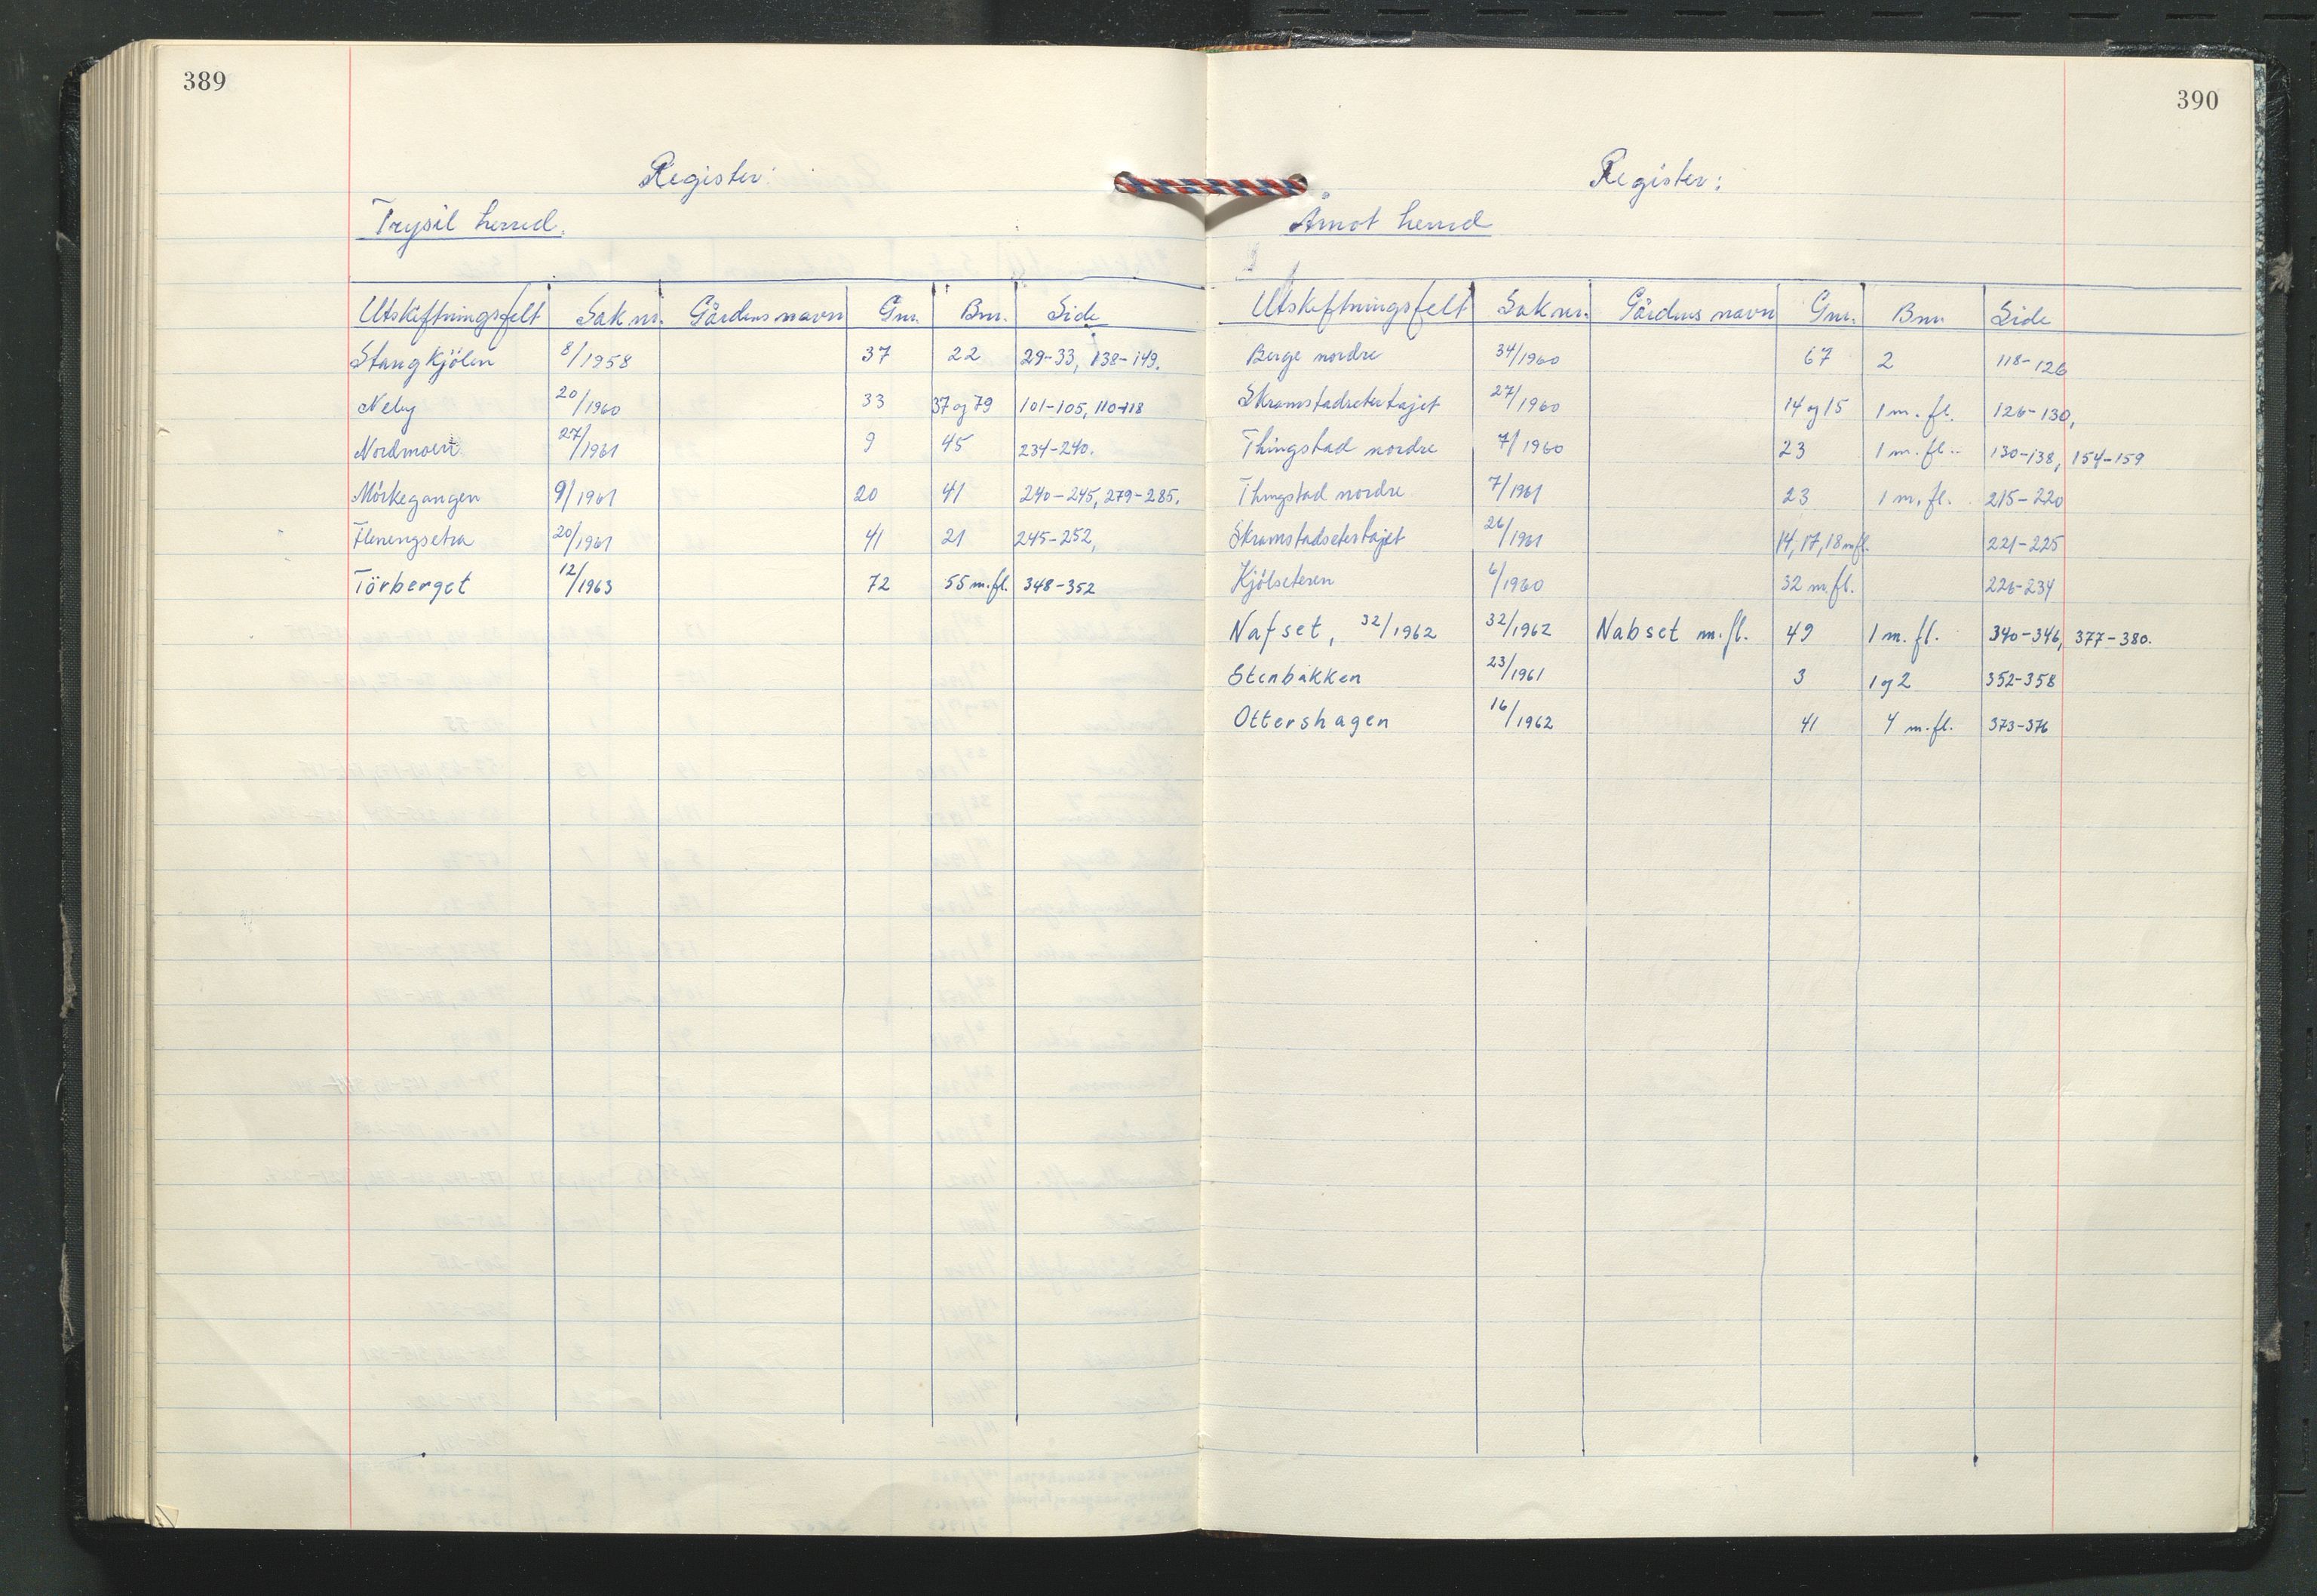 389
Register:
Trysil herred.
Utskiftningsfelt Sak nr. Gårdens navn Gnr. Bnr. Side
Stangkjölen 8/1958 37 22 29-33, 138-149.
Neby 20/1960 33 37 og 79 101-105, 110-118
Nordmoen 27/1961 9 45 234-240.
Mörkegangen 9/1961 20 41 240-245, 279-285.
Flenengsetra 20/1961 41 21 245-252,
Törberget 12/1963 72 55 m.fl. 348-352
390
Register:
Åmot herred
Utskiftningsfelt Sak nr. Gårdens navn Gnr. Bnr. Side
Berge nordre 34/1960 67 2 118-126
Skramstadsetertajet 27/1960 14 og 15 1 m. fl. 126-130,
Thingstad nordre 7/1960 23 1 m. fl. 130-138, 154-159
Thingstad nordre 7/1961 23 1 m. fl. 215-220
Skramstadsetertajet 26/1961 14, 17, 18 m.fl. 221-225
Kjölseteren 6/1960 32 m.fl. 226-234
Nafset, 32/1962 32/1962 Nabset m.fl. 49 1 m. fl. 340-346, 377-380.
Stenbakken 23/1961 3 1 og 2 352-358
Ottershagen 16/1962 41 4 m.fl. 373-376